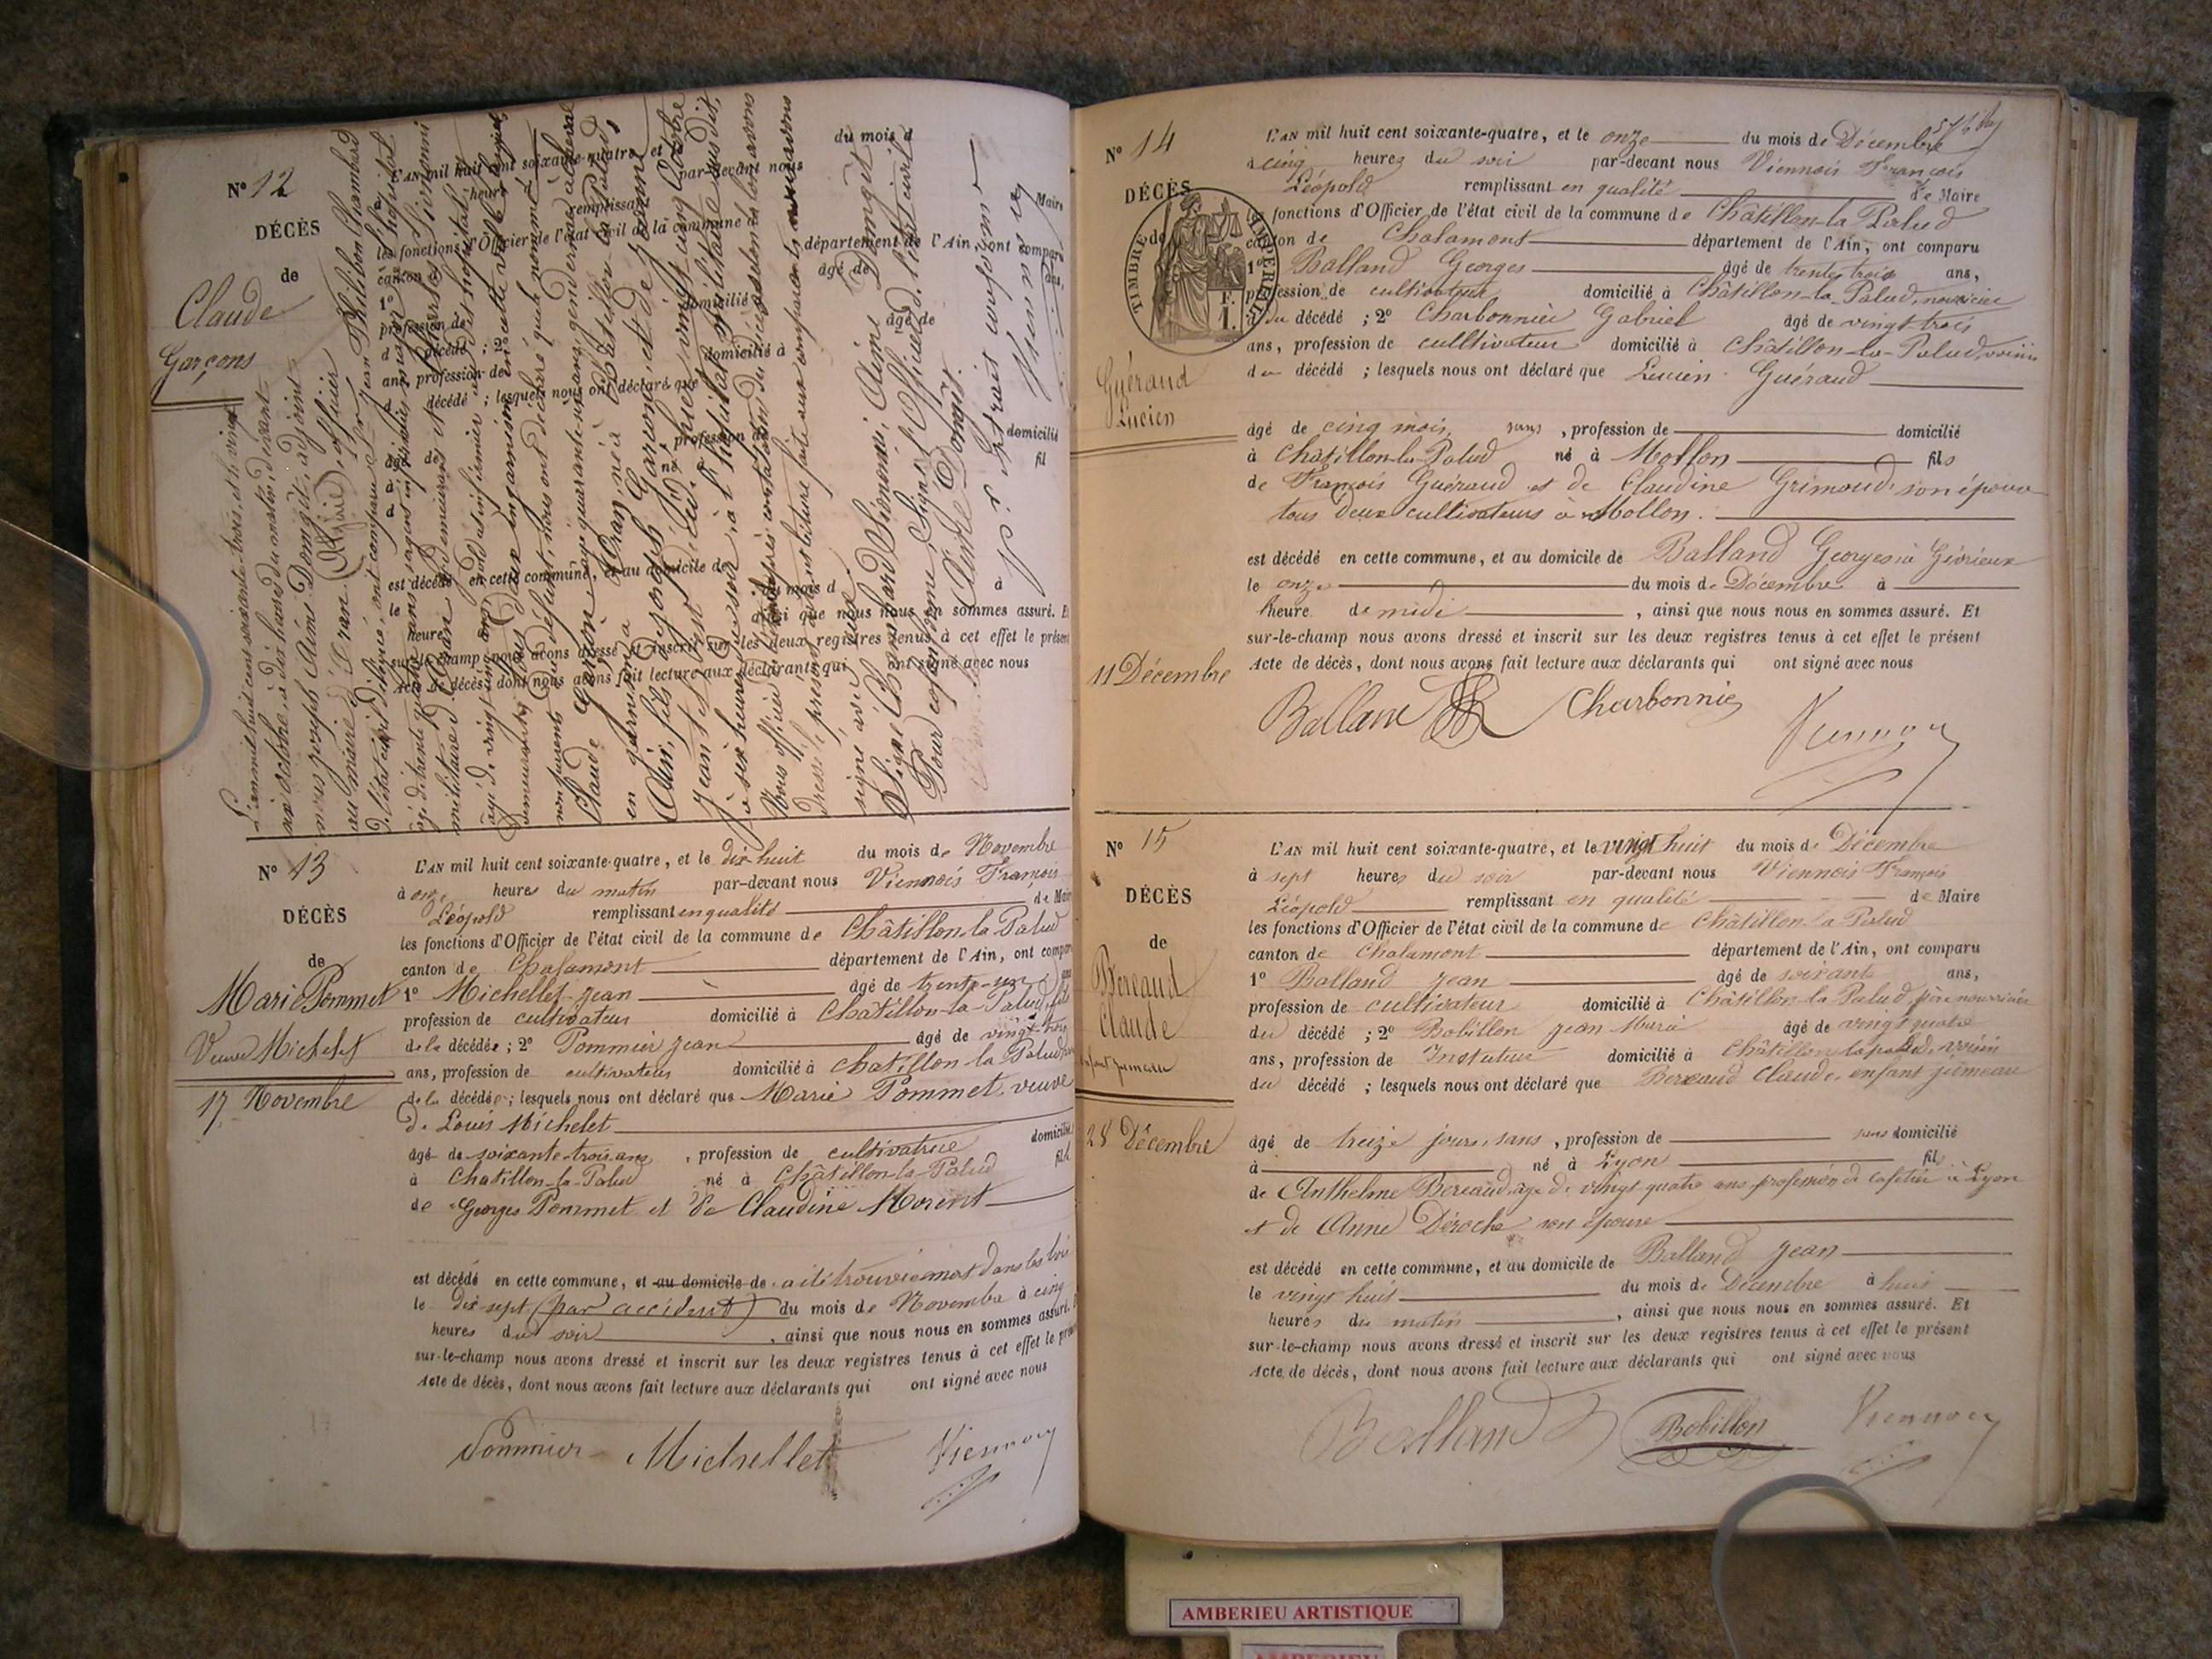 N° 12
DÉCÈS
de
Claude
Garçons
L'an mil huit cent soixante-trois, et le vingt
six octobre, à dix heures du matin, devant
nous joseph Aimé Domgit, adjoint
au maire d'Oran (Algérie), officier
de l'état civil, ont comparu Jean Philibon Chambard
âgé de trente quatre ans, sergent infirmier major à l'hôpital
militaire d'Oran y demeurant et
âgé de vingt ans, soldat infirmier au dit hôpital
demeurant tous deux en garnison en cette ville, lesquels,
non parents du défunt, nous ont déclaré que le nommé
Claude Garçon, âgé quarante-un ans, gendarme à cheval
en garnison à Oran, né à Châtillon-la-Palud
Ain, fils de joseph Garçon et de jeanne
jean est décédé hier vingt cinq Octobre
à six heures du soir, à l'hôpital militaire susdit,
Nous officier après constatation du décès selon la loi avons
dressé le présent acte et lecture faite aux comparants nous avons
signé avec eux.
Signé Chambard, Vionomi, Aimé Domgit
Pour copie conforme, signé l'Officier d. l'état civil
Aimé Domgit.
P. r. extrait conforme
Viennois
L'AN mil huit cent soixante-quatre, et
du mois d
heure
par-devant nous
remplissant
Maire
les fonctions d'Officier de l'état civil de la commune
canton
département de l'Ain, ont comparu
1°
âgé de
ans,
profession de
domicilié
d décédé ; 2°
âgé de
ans, profession de
domicilié à
d décédé ; lesquels nous ont déclaré que
âgé de
profession de
domicilié
à
né à
fil
de
est décédé en cette commune, et au domicile de
le
du mois d
à
heure
ainsi que nous nous en sommes assuré. Et
sur-le-champ nous avons dressé et inscrit sur les deux registres tenus à cet effet le présent
Acte de décès, dont nous avons fait lecture aux déclarants qui ont signé avec nous
N° 13
DÉCÈS
de
Marie Pommet
Veuve Michelet
17 Novembre
L'AN mil huit cent soixante-quatre, et le dix-huit du mois de Novembre
à onze heures du matin par-devant nous Viennois François
Léopold remplissant en qualité de Maire
les fonctions d'Officier de l'état civil de la commune de Châtillon-la-Palud
canton de Chalamont département de l'Ain, ont comparu
1° Michellet jean âgé de trente-un ans
profession de cultivateur domicilié à Châtillon-la-Palud, fils
de la décédée ; 2° Pommier jean âgé de vingt-trois
ans, profession de cultivateur domicilié à Chatillon-la-Palud
de la décédée ; lesquels nous ont déclaré que Marie Pommet, veuve
de Louis Michelet
âgé de soixante-trois ans, profession de cultivatrice domicilié
à Chatillon-la-Palud né à Châtillon-la-Palud fill
de Georges Pommet et de Claudine Morent
est décédé en cette commune, et au domicile de a été trouvée mort dans les bois
le dix-sept (par accident) du mois de Novembre à cinq
heures du soir, ainsi que nous nous en sommes assuré. Et
sur-le-champ nous avons dressé et inscrit sur les deux registres tenus à cet effet le présent
Acte de décès, dont nous avons fait lecture aux déclarants qui ont signé avec nous
Pommier Michellet Viennois
N° 14
DÉCÈS
de
TIMBRE IMPÉRIAL
1 F.
Guéraud
Lucien
11 Décembre
L'AN mil huit cent soixante-quatre, et le onze du mois de Décembre
à cinq heures du soir par-devant nous Viennois François
Léopold remplissant en qualité de Maire
les fonctions d'Officier de l'état civil de la commune de Châtillon-la-Palud
canton de Chalamont département de l'Ain, ont comparu
1° Balland Georges âgé de trente trois ans,
profession de cultivateur domicilié à Châtillon-la-Palud, nourricier
du décédé ; 2° Charbonnier Gabriel âgé de vingt-trois
ans, profession de culltivateur domicilié à Châtillon-la-Palud, voisin
du décédé ; lesquels nous ont déclaré que Lucien Guéraud
âgé de cinq mois, sans, profession de domicilié
à Châtillon-la-Palud né à Mollon fils
de François Guéraud et de Claudine Grimaud son épouse
tous deux cultivateurs à Mollon.
est décédé en cette commune, et au domicile de Balland Georges à Gévrieux
le onze du mois de Décembre à
heure de midi, ainsi que nous nous en sommes assuré. Et
sur-le-champ nous avons dressé et inscrit sur les deux registres tenus à cet effet le présent
Acte de décès, dont nous avons fait lecture aux déclarants qui ont signé avec nous
Balland Charbonnier Viennois
N° 15
DÉCÈS
de
Béréaud
Claude
enfant jumeau
28 Décembre
L'AN mil huit cent soixante-quatre, et le vingt huit du mois de Décembre
à sept heures du soir par-devant nous Viennois François
Léopold remplissant en qualité de Maire
les fonctions d'Officier de l'état civil de la commune de Châtillon-la-Palud
canton de Chalamont département de l'Ain, ont comparu
1° Balland jean âgé de soixante ans,
profession de cultivateur domicilié à Châtillon-la-Palud, père nourricier
du décédé ; 2° Bobillon jean Marie âgé de vingt quatre
ans, profession de Instituteur domicilié à Châtillon la palud, voisin
du décédé ; lesquels nous ont déclaré que Bereaud Claude, enfant jumeau
âgé de treize jours, sans, profession de sans domicilié
à né à Lyon fils
de Anthelme Bereaud, âgé de vingt quatre ans, profession de cafetier à Lyon
et de Anne Déroche son épouse
est décédé en cette commune, et au domicile de Balland jean
le vingt huit du mois de Décembre à huit
heures du matin, ainsi que nous nous en sommes assuré. Et
sur-le-champ nous avons dressé et inscrit sur les deux registres tenus à cet effet le présent
Acte de décès, dont nous avons fait lecture aux déclarants qui ont signé avec nous
Balland Bobillon Viennois
AMBERIEU ARTISTIQUE
AMBERIEU